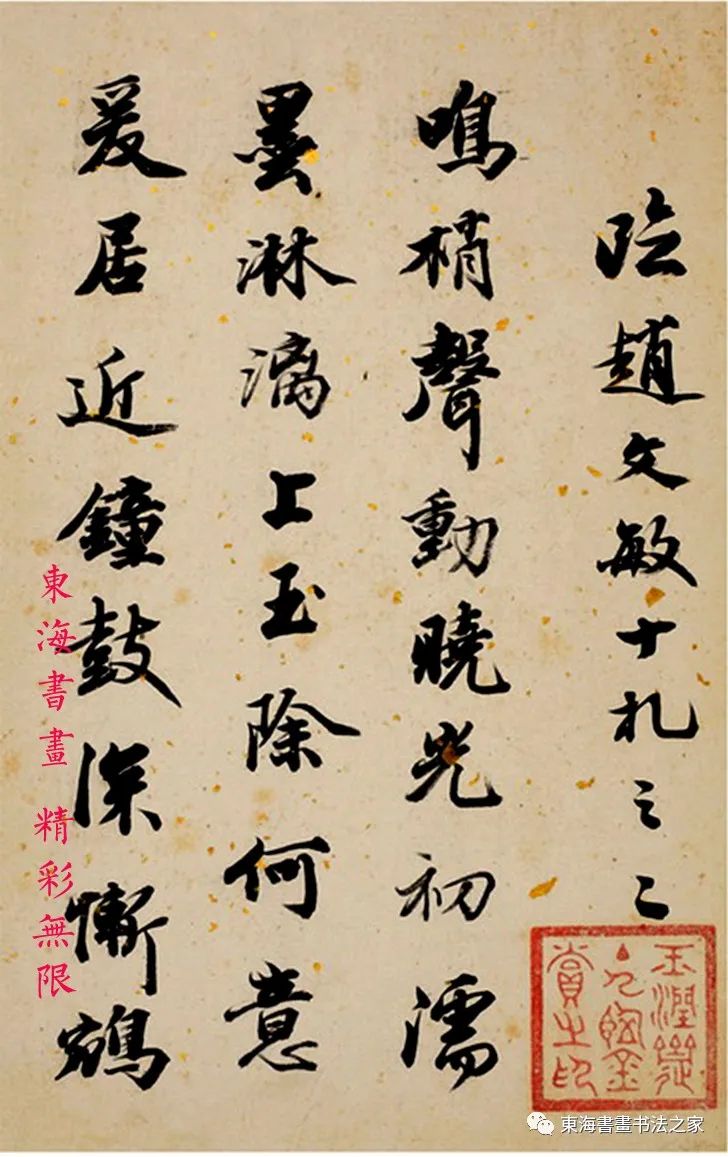 臨趙文敏十札之二
鳴梢聲動曉光初濡
墨淋漓上玉除何意
爰居近鐘鼓深慚鵷
東海書畫 精彩無限
東海書畫书法之家